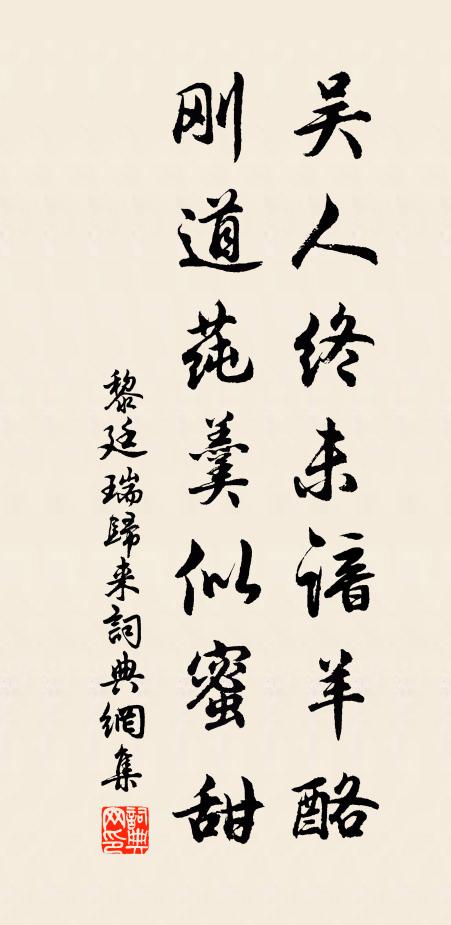 吴人终未谙羊酪
刚道莼羹似蜜甜
黎廷瑞歸来詞典網集
詞典网印